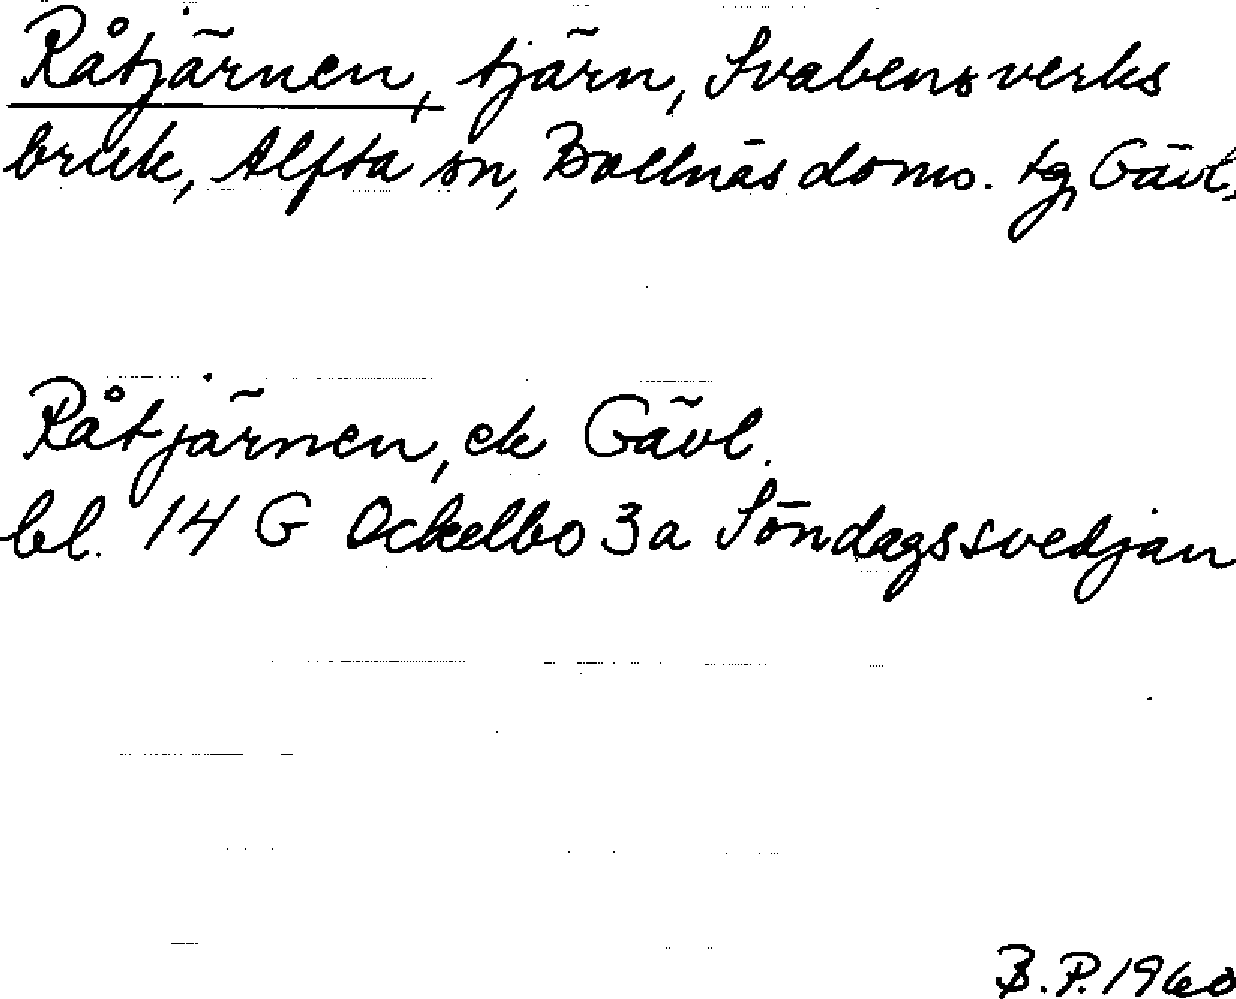 Råtjärnen, tjärn, Svabensverks
bruk, Alfta sn, Bollnäs doms. tg, Gävl.
Råtjärnen, ek Gävl.
bl. 14 G Ockelbo 3a Söndagssvedjan
B.P. 1960